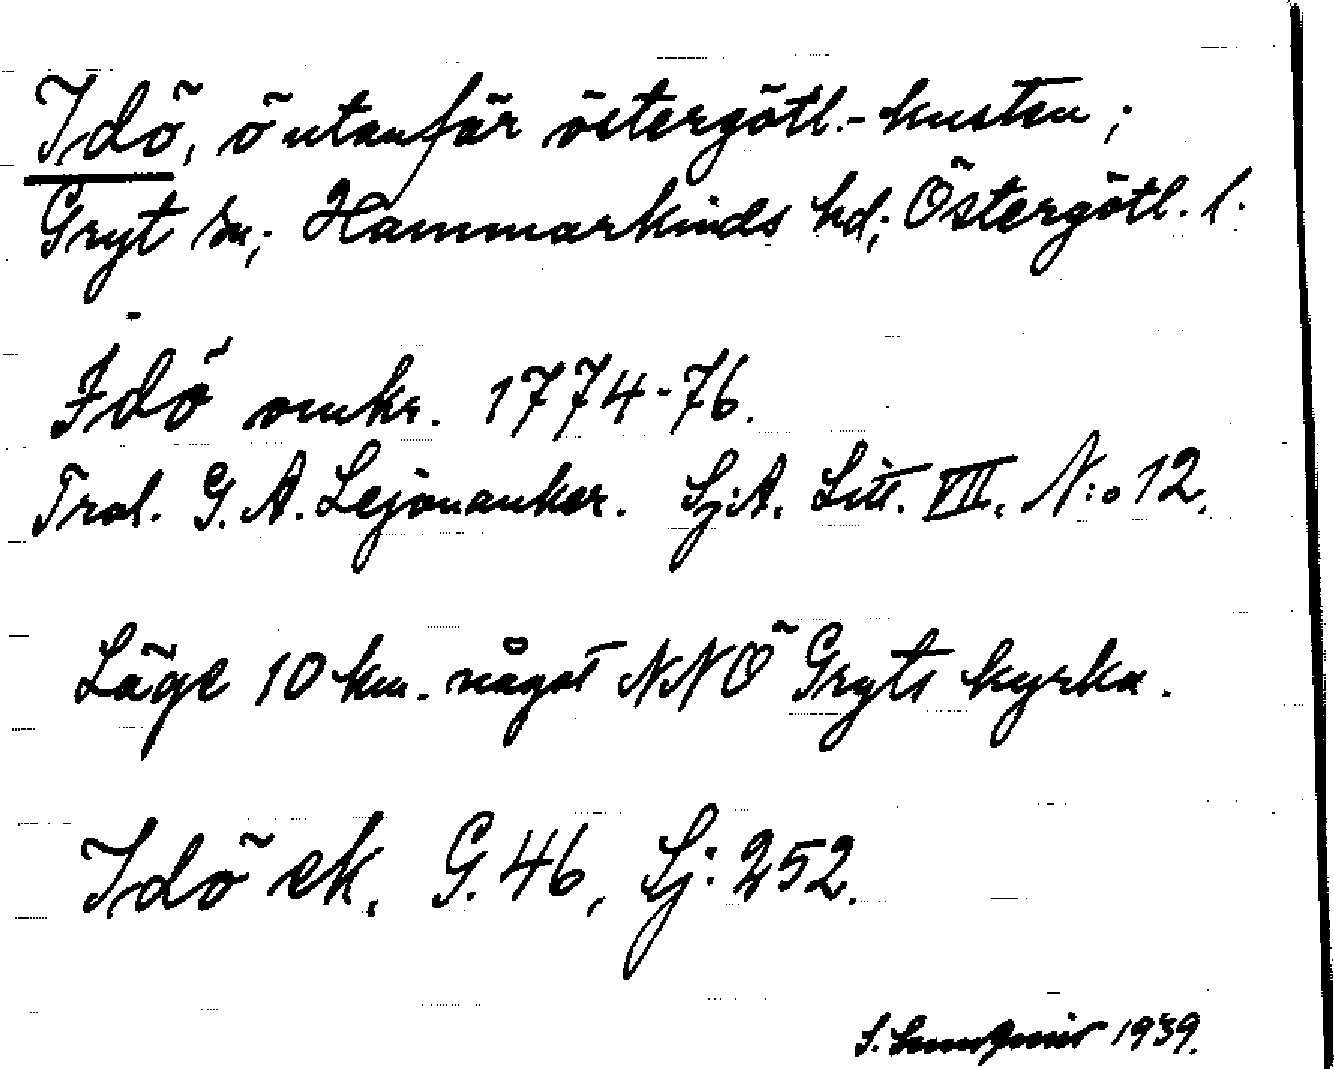 Idö, ö utanför östergötl.-kusten;
Gryt sn; Hammarkinds hd; Östergötl. l.
Idö omkr. 1774-76.
Trol. G. A. Lejonanker. Sj.A. Litt. VII. N:o 12.
Läge 10 km. något NNÖ Gryts kyrka.
Idö ek. G. 46, Sj: 252.
S. 1939.